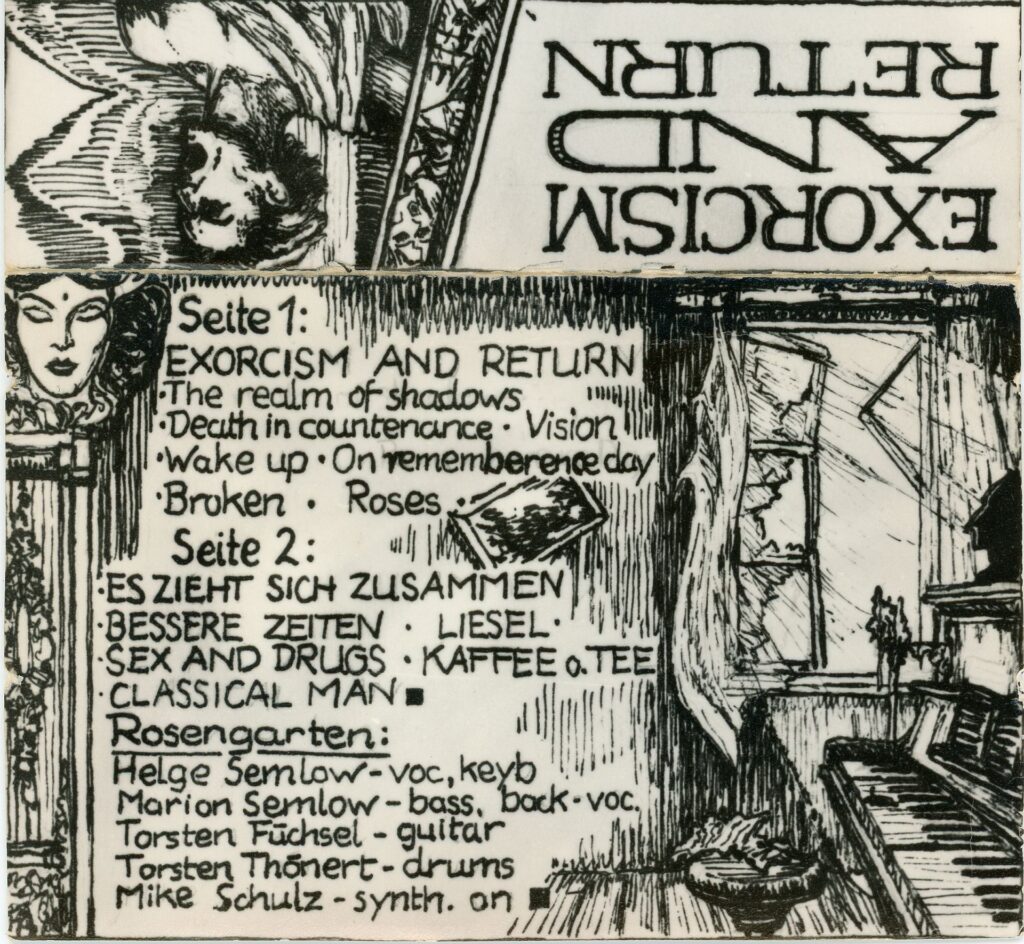 EXORCISM
AND
RETURN
Seite 1:
EXORCISM AND RETURN
·The realm of shadows
·Death in countenance · Vision
·Wake up · On rememberence day
·Broken · Roses ·
Seite 2:
·ES ZIEHT SICH ZUSAMMEN
·BESSERE ZEITEN · LIESEL·
·SEX AND DRUGS · KAFFEE o. TEE
·CLASSICAL MAN ■
Rosengarten:
Helge Semlow - voc, keyb
Marion Semlow - bass, back-voc.
Torsten Füchsel - guitar
Torsten Thönert - drums
Mike Schulz - synth. on ■